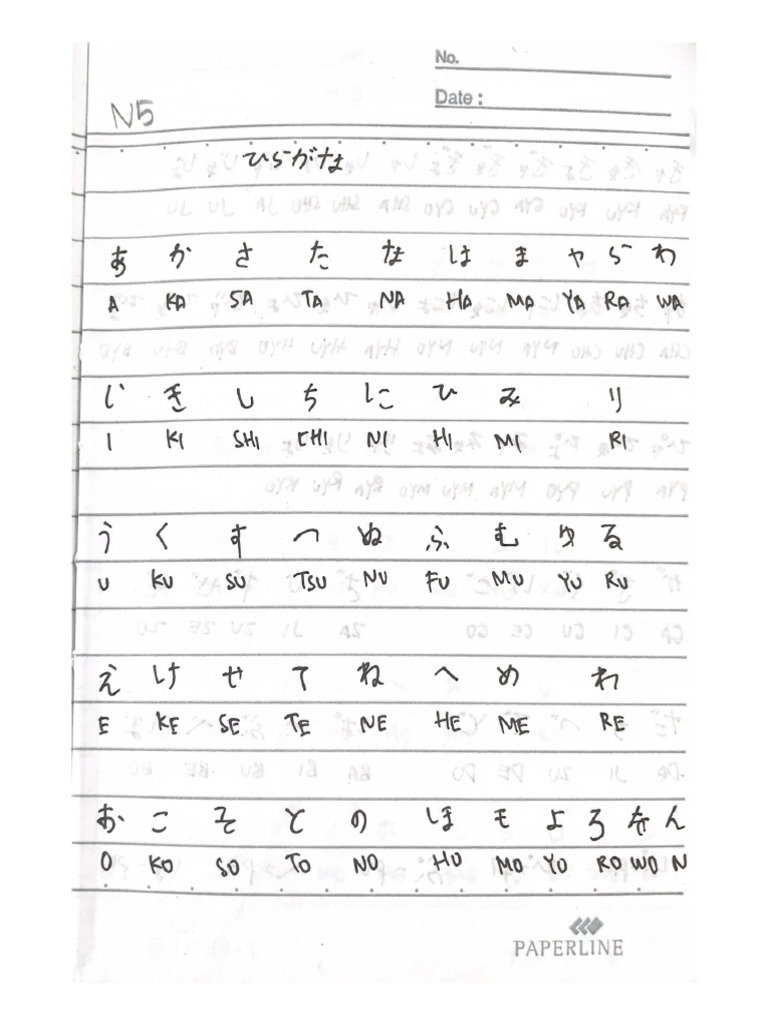 No.
Date :
N5
ひらがな
あ か さ た な は ま や ら わ
A KA SA TA NA HA MA YA RA WA
い き し ち に ひ み り
I KI SHI CHI NI HI MI RI
う く す つ ぬ ふ む ゆ る
U KU SU TSU NU FU MU YU RU
え け せ て ね へ め れ
E KE SE TE NE HE ME RE
お こ そ と の ほ も よ ろ を ん
O KO SO TO NO HO MO YO RO WO N
PAPERLINE